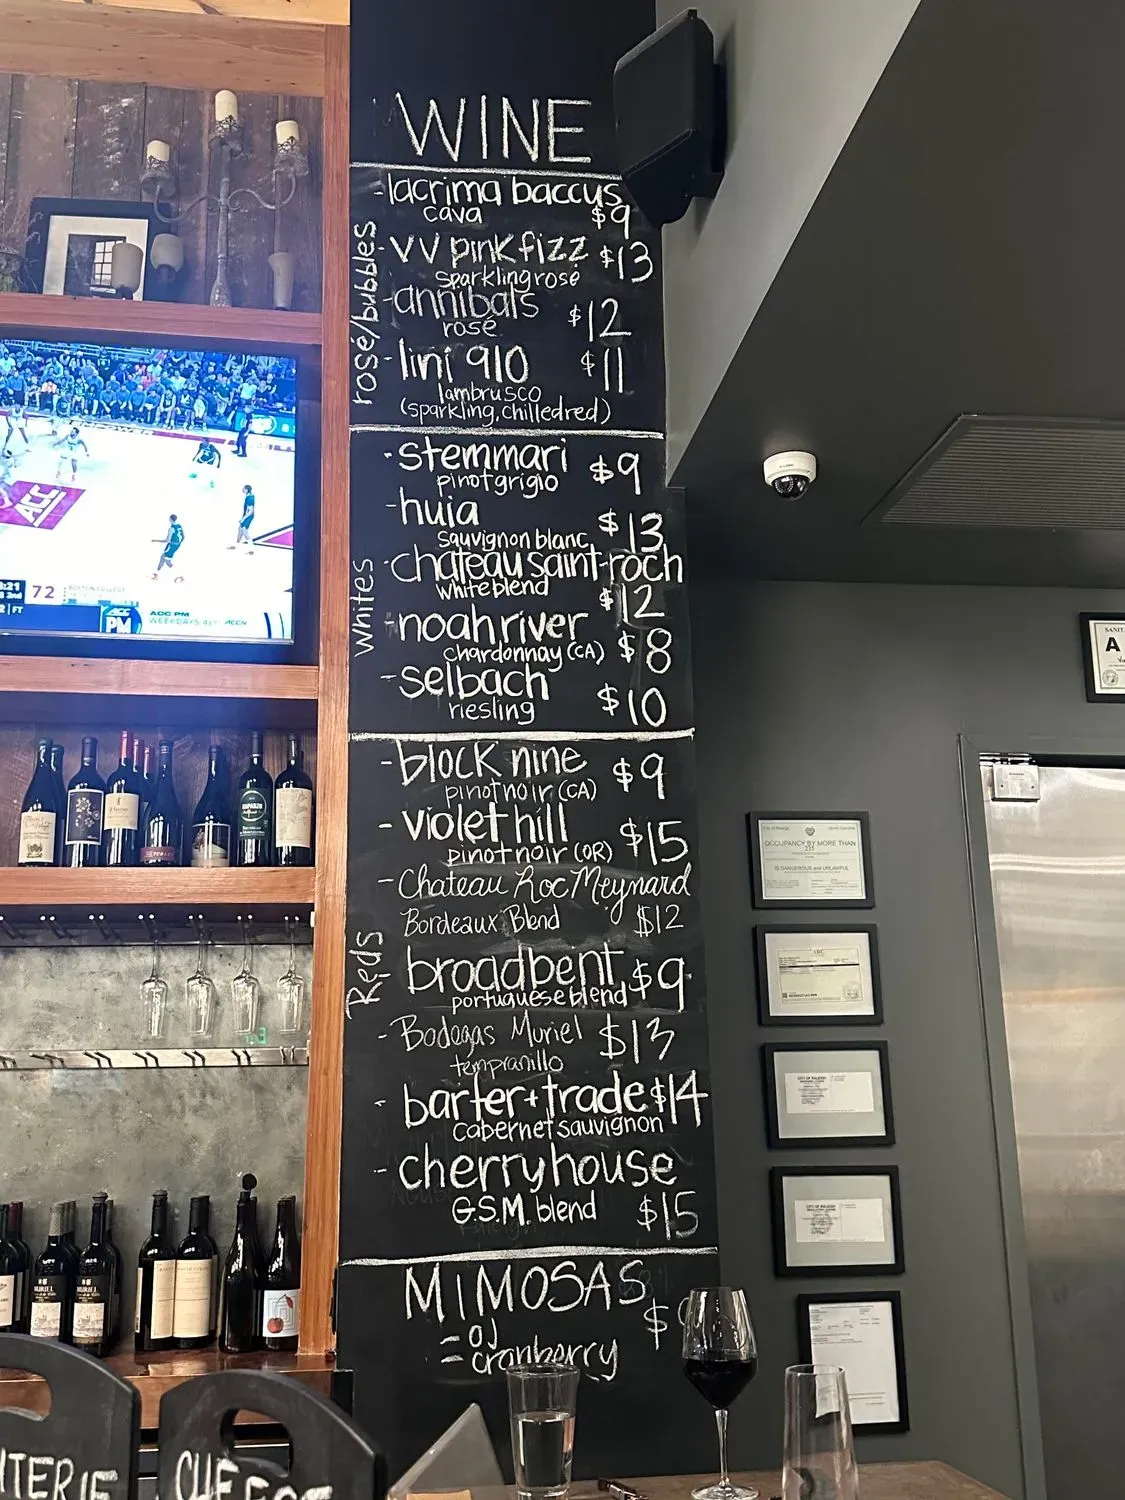 WINE
rosé/bubbles
-lacrima baccus
cava $9
-VV pink fizz $13
sparkling rosé
-annibals $12
rosé
-lini 910 $11
lambrusco
(sparkling, chilled red)
whites
-stemmari $9
pinot grigio
-huia $13
sauvignon blanc
-chateau saint-roch
white blend $12
-noah river $8
chardonnay (CA)
-selbach $10
riesling
Reds
-block nine $9
pinot noir (CA)
-violet hill $15
pinot noir (OR)
-Chateau Roc Meynard
Bordeaux Blend $12
broadbent $9
portuguese blend
-Bodegas Muriel $13
tempranillo
-barter+trade $14
cabernet sauvignon
-cherry house
G.S.M. blend $15
MIMOSAS
-OJ
-cranberry
ACC
72
BOSTON COLLEGE
ACC
PM
ACC PM
FT
A
OCCUPANCY BY MORE THAN
235
IS DANGEROUS and UNLAWFUL
ABC
CITY OF RALEIGH
CITY OF RALEIGH
MURIEL
MURIEL